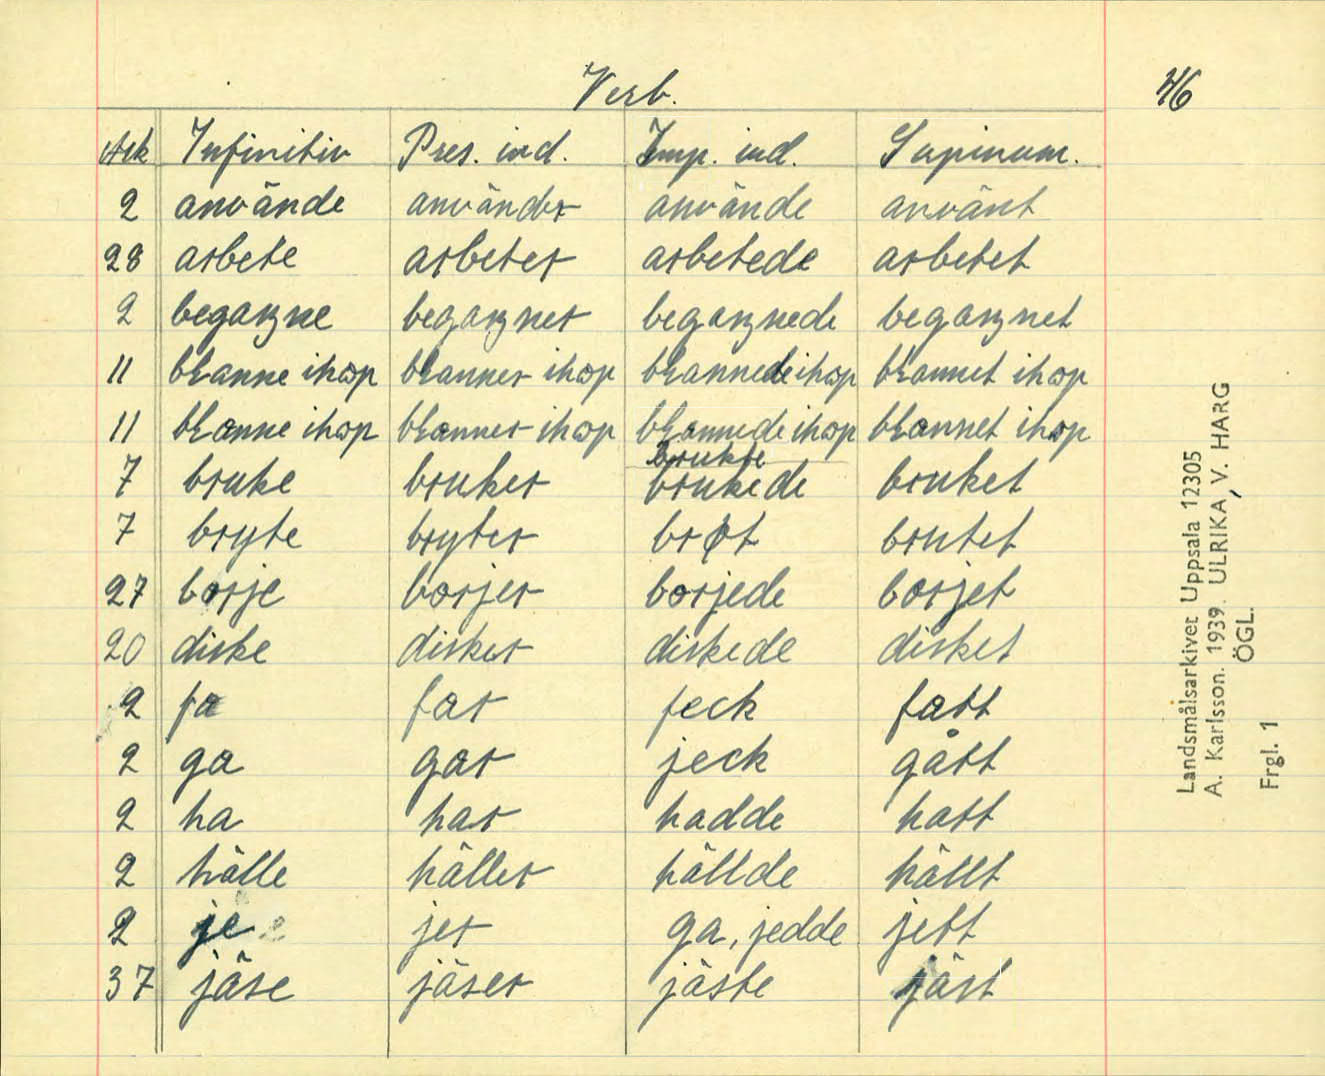 Verb. 46
Ark Infinitiv Pres. ind. Imp. ind. Supinum.
2 använde använder använde använt
28 arbete arbeter arbetede arbetet
2 begangne begangner begangnede begangnet
11 blanne ihop blanner ihop blannede ihop blannet ihop
11 blanne ihop blanner ihop blannede ihop blannet ihop
brukte
7 bruke bruker brukede bruket
7 bryte bryter brøt brutet
27 borje borjer borjede borjet
20 diske disker diskede disket
2 fa far feck fatt
2 ga gar jeck gått
2 ha har hadde hatt
2 hälle häller hällde hällt
2 je jer ga, jedde jett
37 jäse jäser jäste jäst
Landsmålsarkivet Uppsala 12305
A. Karlsson. 1939. ULRIKA, V. HARG
ÖGL.
Frgl. 1